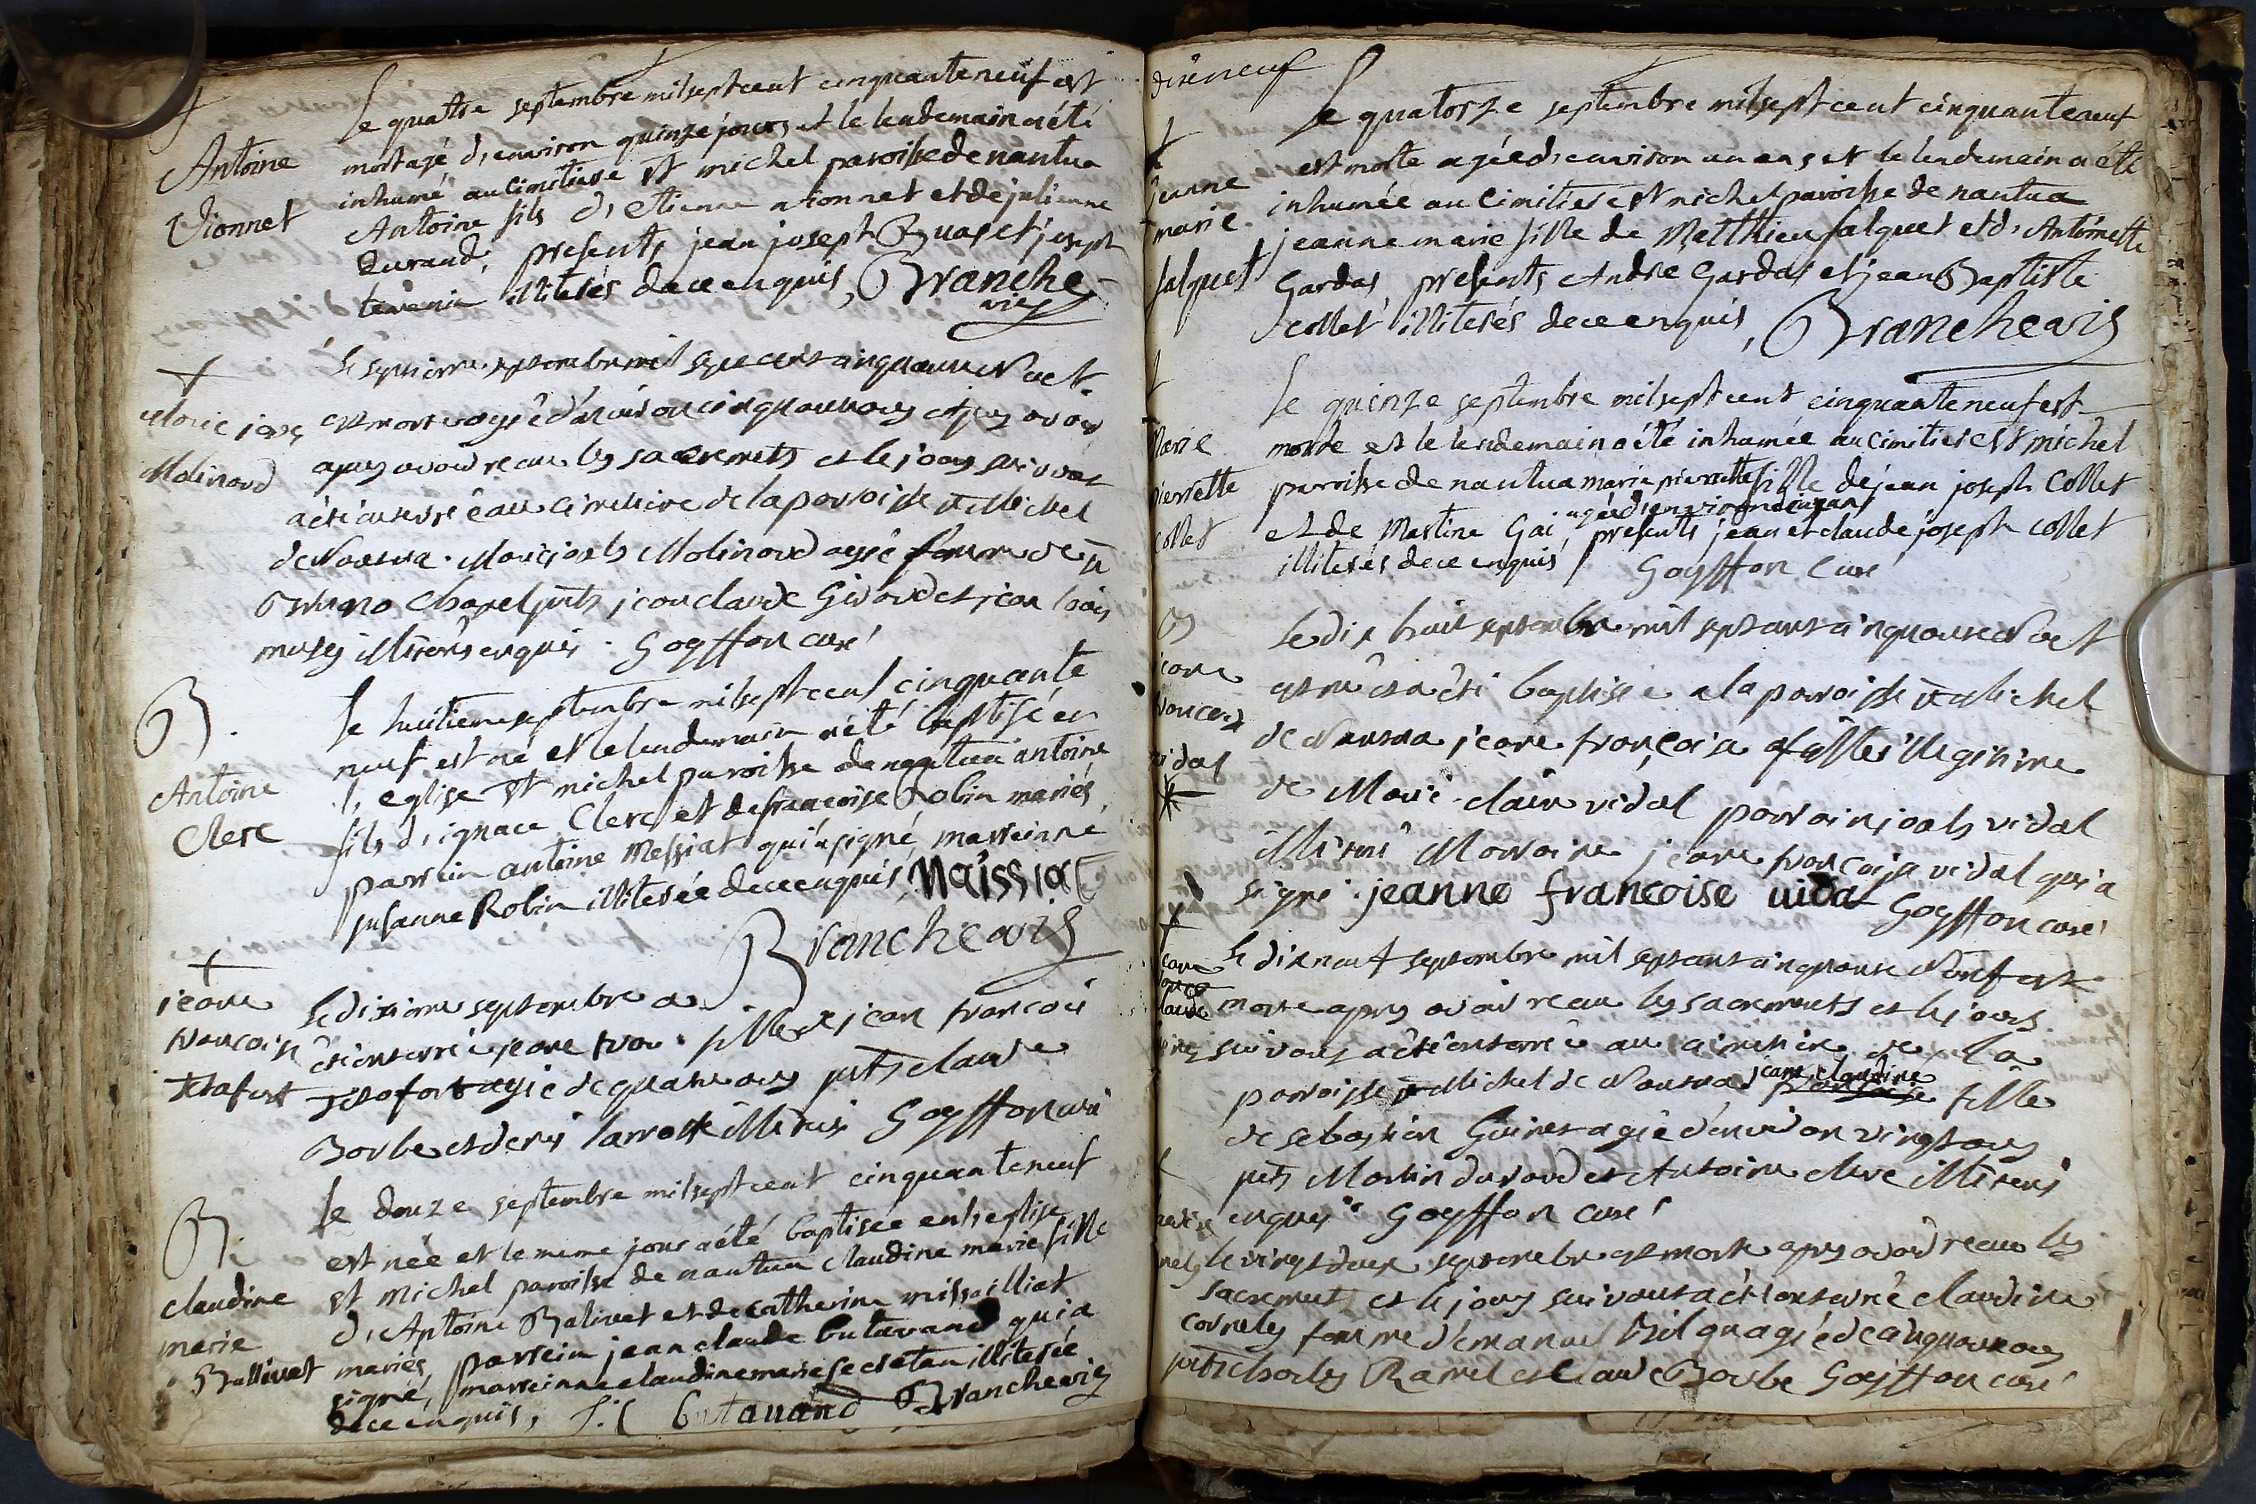 Antoine
Vionnet
Le quatre septembre milseptcent cinquanteneuf est
mort agé d'environ quinze jours et le lendemain a été
inhumé au Cimitiere St michel paroisse de nantua
Antoine fils d'Etienne vionnet et de julienne
Durand, presents jean joseph et joseph
illiterés de ce enquis, Branche
vis
Molinard
Le septieme septembre mil sept cent cinquante neuf
est morte agé d'environ cinquante ans
apres avoir recu les sacrements et le jour suivant
a été enterré au cimitiere de la paroisse st Michel
de Nantua. Molinard agé femme de
Bruno Chapel pnts jean claude Girod et jean louis
illiterés enquis. Goyffon curé
B.
Antoine
Clerc
Le huitieme septembre milseptcent cinquante
neuf est né et le lendemain a été baptisé en
l'eglise St michel paroisse de nantua antoine
fils d'ignace Clerc et de francoise Robin mariés,
parrein antoine Messiat qui a signé, marreinne
susanne Robin illiterée de ce enquis, Maissiat
Branchevis
jeane
francoise
Tetafort
Le dixieme septembre a
été enterré jeane fran. fille de jean francois
Tetafort agé de quatre ans pnts claude
Borbe et denis larroste illiterés Goyffon curé
B.
claudine
marie
Ballivet
Le douze septembre milseptcent cinquanteneuf
est née et le meme jour a été baptisée en l'eglise
St michel paroisse de nantua claudine marie fille
d'Antoine Balivet et de catherine missilliat
mariés, parrein jean claude butavand qui a
signé, marreinne claudine marie secretan illiterée
de ce enquis, J: C butavand Branchevis
dixneuf
jeanne
marie
falquet
Le quatorze septembre milseptcent cinquanteneuf
est morte agée d'environ un ans et le lendemain a été
inhumée au Cimitiere St michel paroisse de nantua
jeanne marie fille de Matthieu falquet et d'Antoinette
Gardas, presents André Gardas et jean Baptiste
collet illiterés de ce enquis, Branchevis
Marie
pierrette
Collet
Le quinze septembre milseptcent cinquanteneuf est
morte et le lendemain a été inhumée au cimitiere St michel
paroisse de nantua marie pierrette fille de jean joseph Collet
et de Martine Gai, agée d'environ ans presents jean et claude joseph collet
illiterés de ce enquis, Goyffon Curé
B
jeane
francoise
vidal
Le dix huit septembre mil sept cent cinquante neuf
est née et a été baptissé a la paroisse st Michel
de Nantua jeane françoisa fille illegitime
de Marie claire vidal parrain joseph vidal
illiteré Marraine jeane francoisa vidal qui a
signé. jeanne francoise uidal Goyffon curé
jeane
claude
Le dixneuf septembre mil sept cent cinquante neuf est
morte apres avoir recu les sacrements et le jour
suivant a été enterré au cimitiere de la
paroisse st Michel de Nantua jeane claudine fille
de sebastien Guinet agé d'environ vingt ans
pnts Martin durand et Antoine Clerc illiterés
enquis Goyffon curé
Le vingt deux septembre est morte apres avoir recu les
sacrements et le jour suivant a été enterré claudine
Cornely femme d'emanuel agé de cinquante ans
pnts charles Ravel et Claude Borbe Goyffon curé